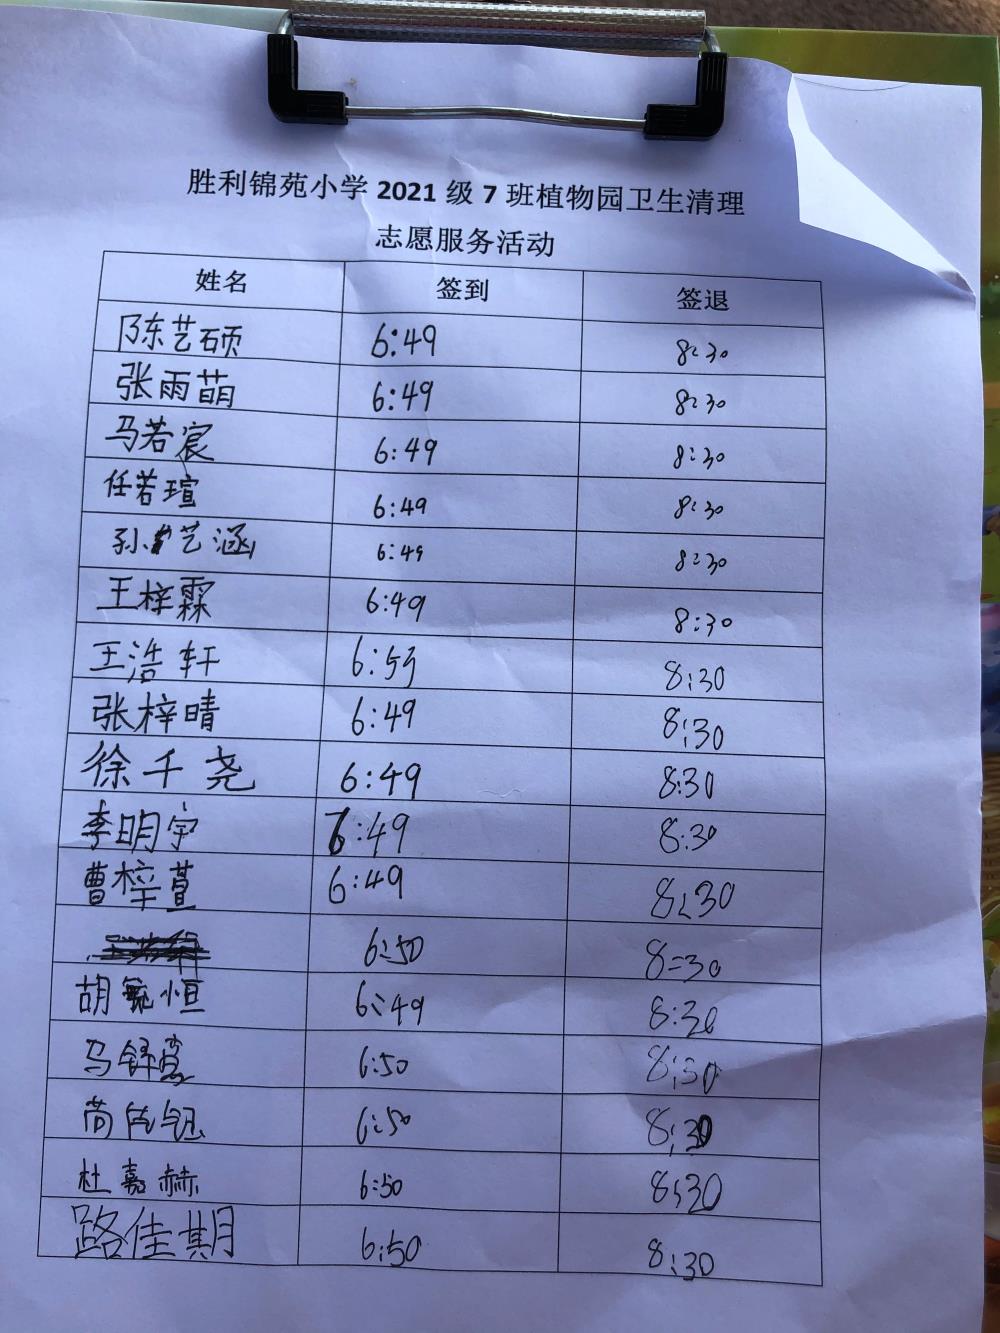 胜利锦苑小学 2021 级 7 班植物园卫生清理
志愿服务活动
姓名 签到 签退
陈艺硕 6:49 8:30
张雨萌 6:49 8:30
马若宸 6:49 8:30
任若瑄 6:49 8:30
孙艺涵 6:49 8:30
王梓霖 6:49 8:30
王浩轩 6:53 8:30
张梓晴 6:49 8:30
徐千尧 6:49 8:30
李明宇 6:49 8:30
曹梓萱 6:49 8:30
6:50 8:30
胡毓恒 6:49 8:30
马舒 6:50 8:30
钰 6:50 8:30
杜嘉赫 6:50 8:30
路佳期 6:50 8:30